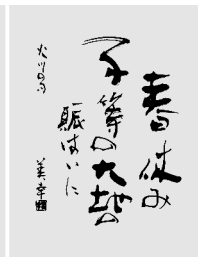 春休み
子等の大地の
賑はいに
美幸